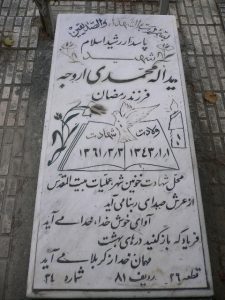 پاسدار رشید اسلام
شهید
یداله محمدی اروجه
فرزند رمضان
ولادت شهادت
۱۳۴۳/۱/۱ ۱۳۶۱/۳/۳
محل شهادت خونین شهر عملیات بیت المقدس
از عرش صدای ربنا می آید
آوای خوش خدا، خدا می آید
فریاد که باز کنید درهای بهشت
مهمان خدا ز کربلا می آید
قطعه ۲۶ ردیف ۸۱ شماره ۲۴